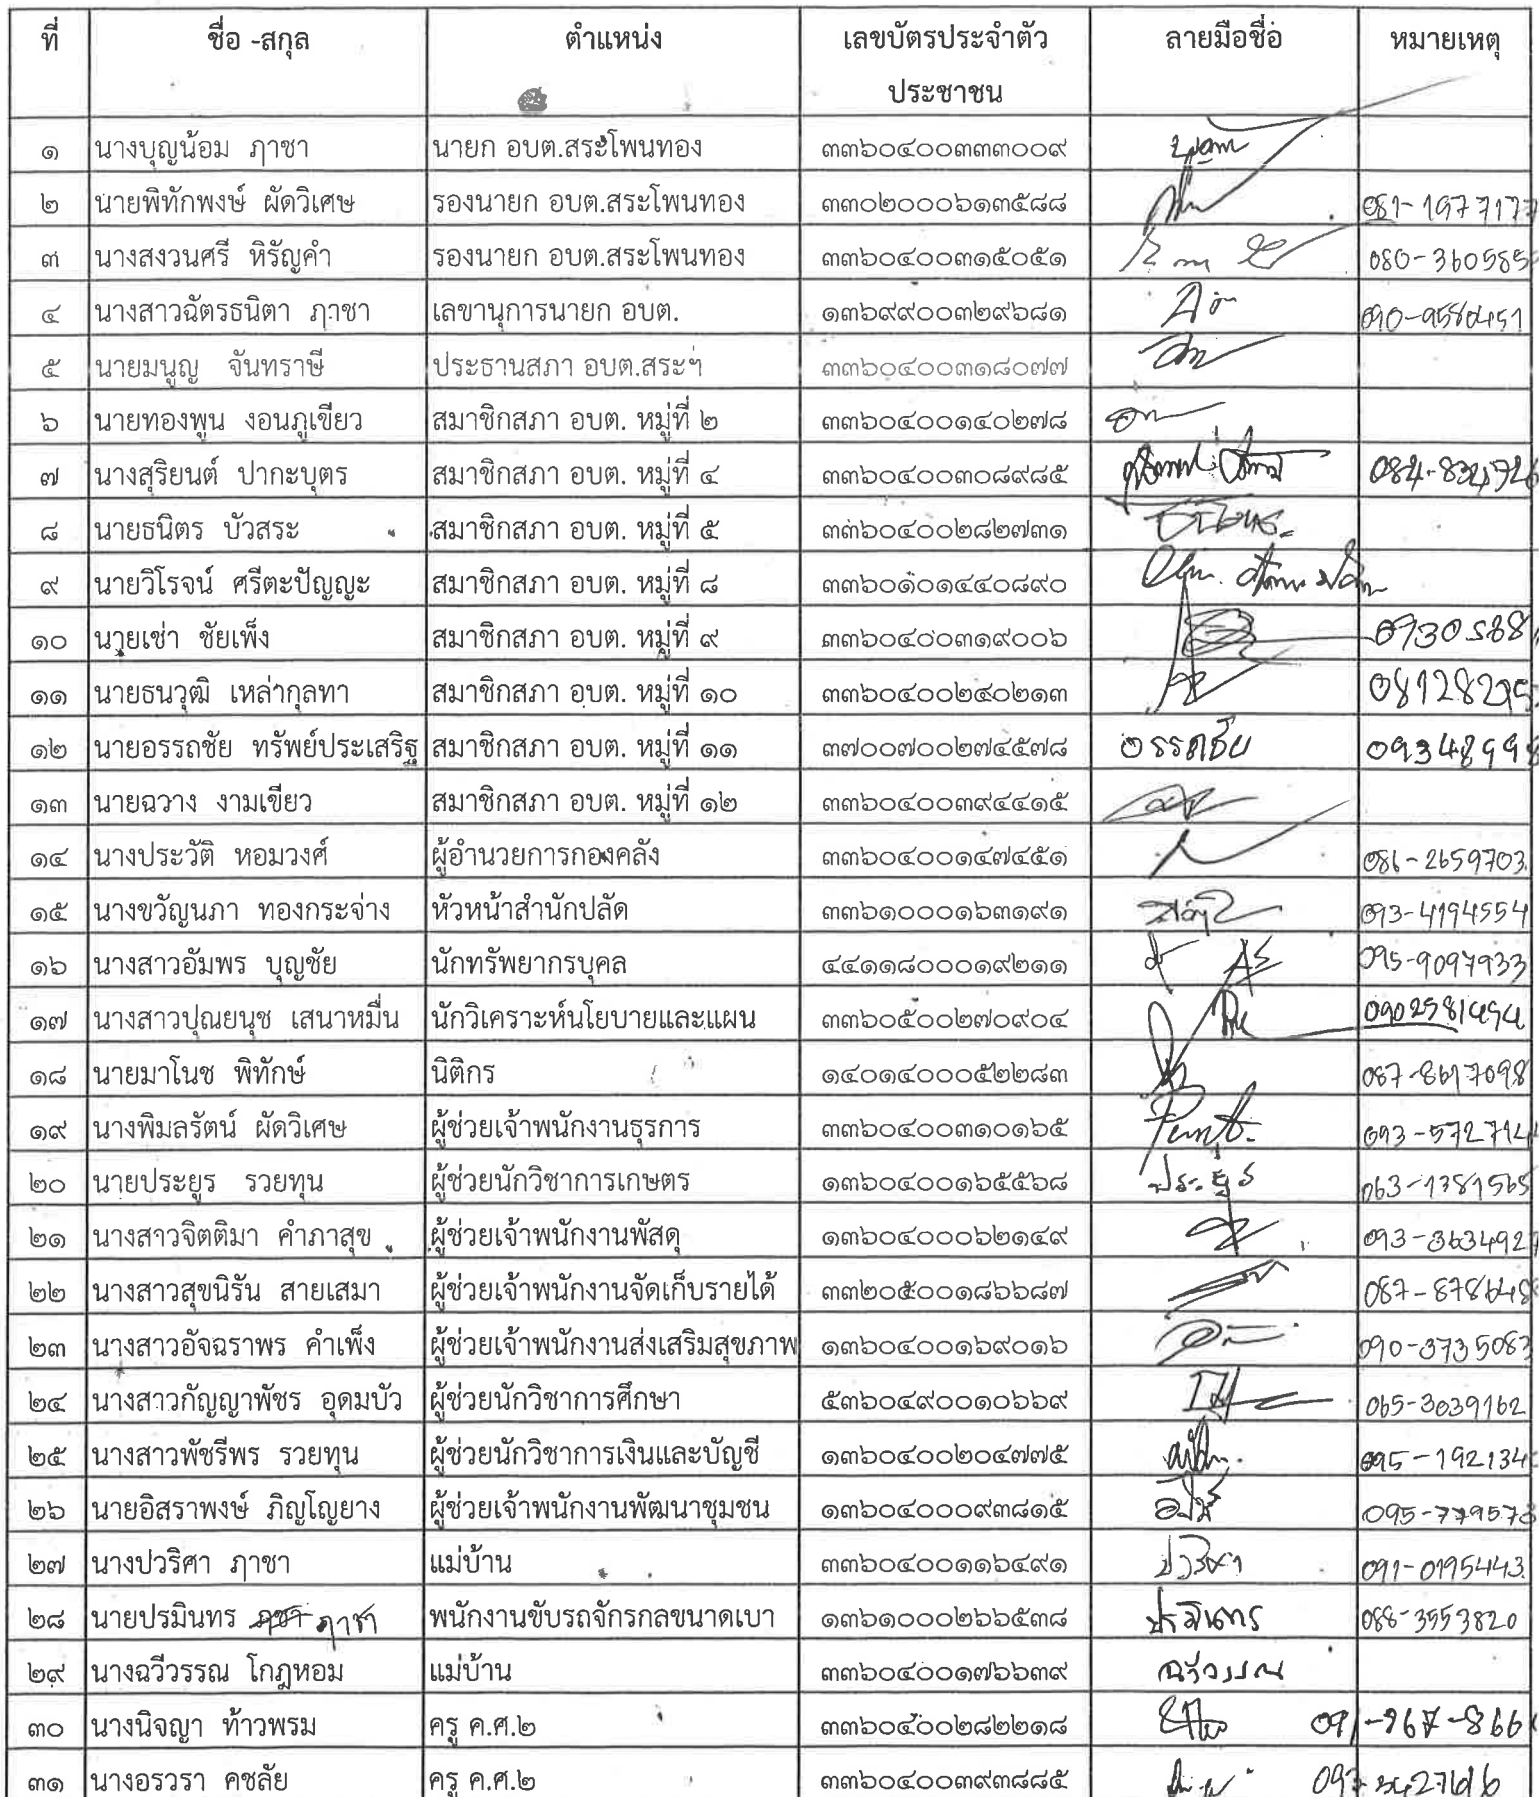 ที่ ชื่อ -สกุล ตำแหน่ง เลขบัตรประจำตัว ลายมือชื่อ หมายเหตุ
ประชาชน
๑ นางบุญน้อม ภาชา นายก อบต.สระโพนทอง ๓๓๖๐๔๐๐๓๓๓๐๐๙
๒ นายพิทักพงษ์ ผัดวิเศษ รองนายก อบต.สระโพนทอง ๓๓๐๒๐๐๐๖๑๓๕๘๘ 081-1977177
๓ นางสงวนศรี หิรัญคำ รองนายก อบต.สระโพนทอง ๓๓๖๐๔๐๐๓๑๕๐๕๑ 080-360585
๔ นางสาวฉัตรธนิตา ภาชา เลขานุการนายก อบต. ๑๓๖๙๙๐๐๓๒๙๖๘๑ 090-9580451
๕ นายมนูญ จันทราษี ประธานสภา อบต.สระฯ ๓๓๖๐๔๐๐๓๑๘๐๗๗
๖ นายทองพูน งอนภูเขียว สมาชิกสภา อบต. หมู่ที่ ๒ ๓๓๖๐๔๐๐๑๔๐๒๗๘
๗ นางสุริยนต์ ปากะบุตร สมาชิกสภา อบต. หมู่ที่ ๔ ๓๓๖๐๔๐๐๓๐๘๙๘๕
๘ นายธนิตร บัวสระ สมาชิกสภา อบต. หมู่ที่ ๕ ๓๓๖๐๔๐๐๒๘๒๗๓๑
๙ นายวิโรจน์ ศรีตะปัญญะ สมาชิกสภา อบต. หมู่ที่ ๘ ๓๓๖๐๑๐๑๔๔๐๘๙๐
๑๐ นายเช่า ชัยเพ็ง สมาชิกสภา อบต. หมู่ที่ ๙ ๓๓๖๐๔๐๐๓๑๙๐๐๖
๑๑ นายธนวุฒิ เหล่ากุลทา สมาชิกสภา อบต. หมู่ที่ ๑๐ ๓๓๖๐๔๐๐๒๔๐๒๑๓
๑๒ นายอรรถชัย ทรัพย์ประเสริฐ สมาชิกสภา อบต. หมู่ที่ ๑๑ ๓๗๐๐๗๐๐๒๗๔๕๗๘ อรรถชัย 09348998
๑๓ นายฉวาง งามเขียว สมาชิกสภา อบต. หมู่ที่ ๑๒ ๓๓๖๐๔๐๐๓๙๔๔๑๕
๑๔ นางประวัติ หอมวงศ์ ผู้อำนวยการกองคลัง ๓๓๖๐๔๐๐๑๔๗๔๕๑ 086-2659703
๑๕ นางขวัญนภา ทองกระจ่าง หัวหน้าสำนักปลัด ๓๓๖๑๐๐๐๑๖๓๑๙๑ 093-4194554
๑๖ นางสาวอัมพร บุญชัย นักทรัพยากรบุคล ๔๔๑๑๘๐๐๐๑๙๒๑๑ 095-9097933
๑๗ นางสาวปุณยนุช เสนาหมื่น นักวิเคราะห์นโยบายและแผน ๓๓๖๐๕๐๐๒๗๐๙๐๔ 0902581494
๑๘ นายมาโนช พิทักษ์ นิติกร ๑๔๐๑๔๐๐๐๕๒๒๘๓ 087-8617098
๑๙ นางพิมลรัตน์ ผัดวิเศษ ผู้ช่วยเจ้าพนักงานธุรการ ๓๓๖๐๔๐๐๓๑๐๑๖๕ 093-572714
๒๐ นายประยูร รวยทุน ผู้ช่วยนักวิชาการเกษตร ๑๓๖๐๔๐๐๑๖๕๕๖๘ ประยูร 063-1781565
๒๑ นางสาวจิตติมา คำภาสุข ผู้ช่วยเจ้าพนักงานพัสดุ ๑๓๖๐๔๐๐๐๖๒๑๔๙ 093-3634927
๒๒ นางสาวสุขนิรัน สายเสมา ผู้ช่วยเจ้าพนักงานจัดเก็บรายได้ ๓๓๒๐๕๐๐๑๘๖๖๘๗ 087-878648
๒๓ นางสาวอัจฉราพร คำเพ็ง ผู้ช่วยเจ้าพนักงานส่งเสริมสุขภาพ ๑๓๖๐๔๐๐๑๖๙๐๑๖ 090-3735083
๒๔ นางสาวกัญญาพัชร อุดมบัว ผู้ช่วยนักวิชาการศึกษา ๕๓๖๐๔๙๐๐๑๐๖๖๙ 065-3039162
๒๕ นางสาวพัชรีพร รวยทุน ผู้ช่วยนักวิชาการเงินและบัญชี ๑๓๖๐๔๐๐๒๐๔๗๗๕ 095-192134
๒๖ นายอิสราพงษ์ ภิญโญยาง ผู้ช่วยเจ้าพนักงานพัฒนาชุมชน ๑๓๖๐๔๐๐๐๙๓๘๑๕ 095-779573
๒๗ นางปวริศา ภาชา แม่บ้าน ๓๓๖๐๔๐๐๑๑๖๔๙๑ ปวริศา 091-0195443
๒๘ นายปรมินทร ภาชา พนักงานขับรถจักรกลขนาดเบา ๑๓๖๑๐๐๐๒๖๖๕๓๘ ปรมินทร 088-3553820
๒๙ นางฉวีวรรณ โกฎหอม แม่บ้าน ๓๓๖๐๔๐๐๑๗๖๖๓๙ ฉวีวรรณ
๓๐ นางนิจญา ท้าวพรม ครู ค.ศ.๒ ๓๓๖๐๔๐๐๒๘๒๒๑๘ 091-967-866
๓๑ นางอรวรา คชลัย ครู ค.ศ.๒ ๓๓๖๐๔๐๐๓๙๓๘๘๕